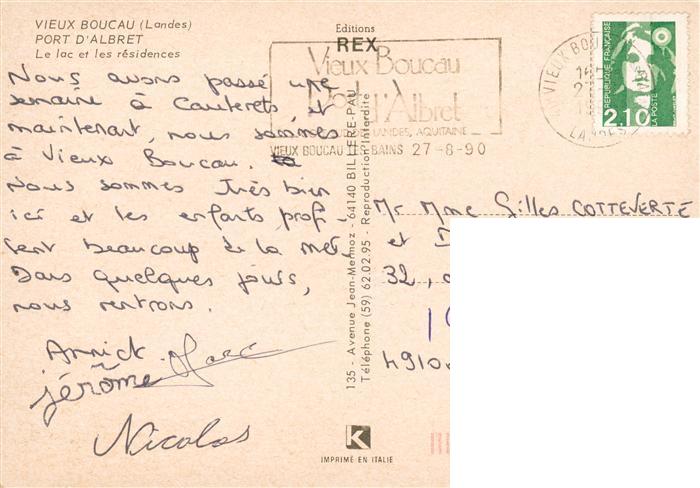 VIEUX BOUCAU (Landes)
PORT D'ALBRET
Le lac et les résidences
Nous avons passé une
semaine à Cauterets et
maintenant, nous sommes
à Vieux Boucau.
Nous sommes très bien
ici et les enfants profi-
tent beaucoup de la mer.
Dans quelques jours,
nous rentrons.
Annick
Jérôme Marc
Nicolas
Editions
REX
135 - Avenue Jean-Mermoz - 64140 BILLÈRE-PAU
Téléphone (59) 62.02.95 - Reproduction Interdite
K
IMPRIMÉ EN ITALIE
Vieux Boucau
Port d'Albret
LANDES, AQUITAINE
VIEUX BOUCAU LES BAINS 27-8-90
VIEUX BOU
LANDES
RÉPUBLIQUE FRANÇAISE
LA POSTE
2,10
Mr Mme Gilles COTTEVERTE
et D
32,
4910